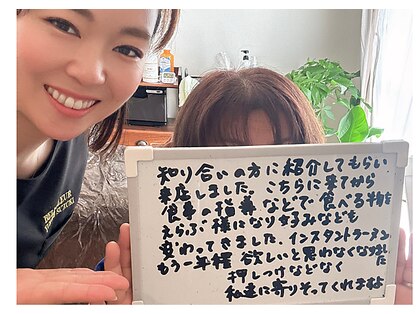 知り合いの方に紹介してもらい
来店しました。こちらに来てから
食事の指導などで食べる物を
えらぶ様になり好みなども
変わってきました。インスタントラーメン
もう一年程欲しいと思わなくなりました
押しつけなどなく
私達に寄りそってくれますよ